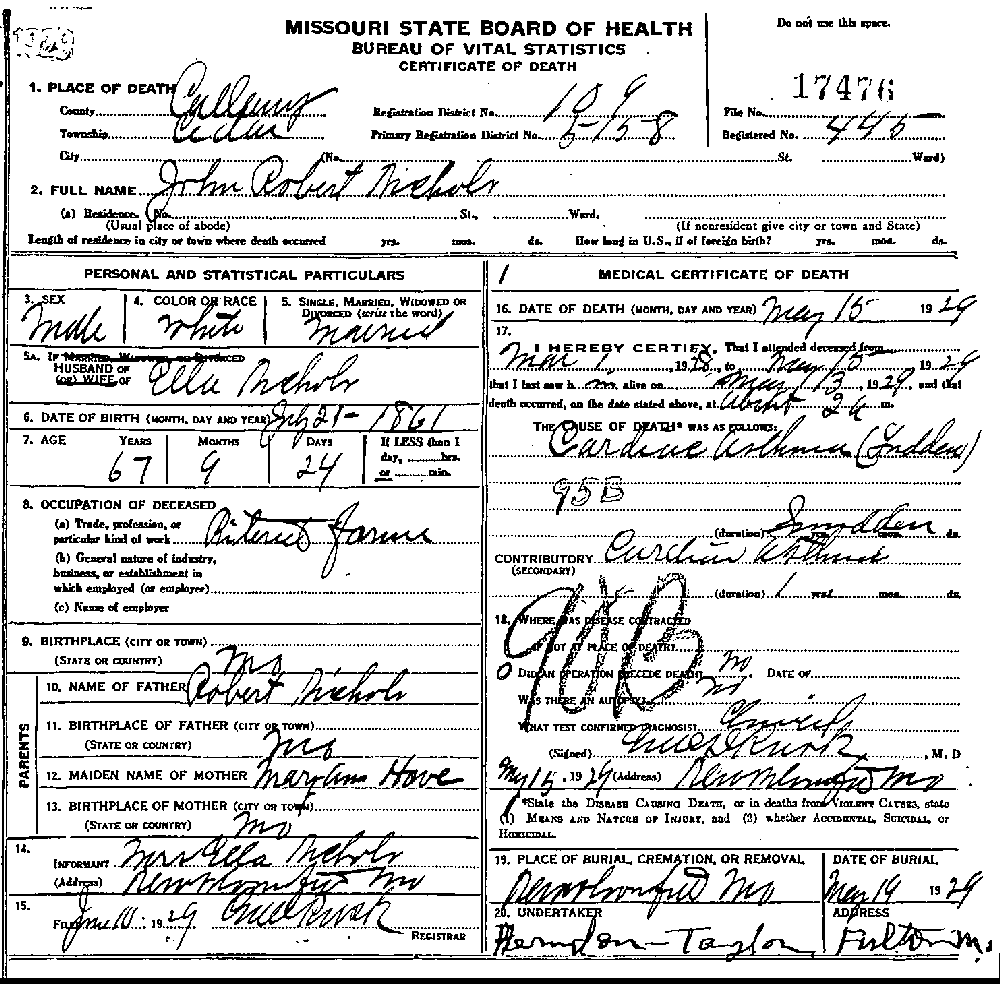 1929
MISSOURI STATE BOARD OF HEALTH
BUREAU OF VITAL STATISTICS
CERTIFICATE OF DEATH
Do not use this space.
17476
1. PLACE OF DEATH
County Callaway Registration District No. 109 File No.
Township Cedar Primary Registration District No. 5158 Registered No. 445
City (No. St. Ward)
2. FULL NAME John Robert Nichols
(a) Residence. No. St., Ward.
(Usual place of abode) (If nonresident give city or town and State)
Length of residence in city or town where death occurred yrs. mos. ds. How long in U.S., if of foreign birth? yrs. mos. ds.
PERSONAL AND STATISTICAL PARTICULARS
3. SEX 4. COLOR OR RACE 5. SINGLE, MARRIED, WIDOWED OR DIVORCED (write the word)
Male White Married
5A. IF MARRIED, WIDOWED, OR DIVORCED
HUSBAND OF
(OR) WIFE OF Ella Nichols
6. DATE OF BIRTH (MONTH, DAY AND YEAR) July 21- 1861
7. AGE YEARS MONTHS DAYS If LESS than 1
day, hrs.
or min.
67 9 24
8. OCCUPATION OF DECEASED
(a) Trade, profession, or
particular kind of work Retired farmer
(b) General nature of industry,
business, or establishment in
which employed (or employer)
(c) Name of employer
9. BIRTHPLACE (CITY OR TOWN)
(STATE OR COUNTRY) Mo
PARENTS
10. NAME OF FATHER Robert Nichols
11. BIRTHPLACE OF FATHER (CITY OR TOWN)
(STATE OR COUNTRY) Mo
12. MAIDEN NAME OF MOTHER Mary Ann Hove
13. BIRTHPLACE OF MOTHER (CITY OR TOWN)
(STATE OR COUNTRY) Mo
14.
INFORMANT Mrs Ella Nichols
(Address) New Bloomfield Mo
15.
FILED June 10, 1929
REGISTRAR
MEDICAL CERTIFICATE OF DEATH
16. DATE OF DEATH (MONTH, DAY AND YEAR) May 15 1929
17.
I HEREBY CERTIFY, That I attended deceased from
Mar 1, 1928, to May 15 1929
that I last saw h m alive on May 13, 1929, and that
death occurred, on the date stated above, at About 2 a m.
THE CAUSE OF DEATH* WAS AS FOLLOWS:
Cardiac Asthma (Sudden)
95B
(duration) Sudden mos. ds.
CONTRIBUTORY Cardiac Asthma
(SECONDARY)
(duration) 1 yrs. mos. ds.
18. WHERE WAS DISEASE CONTRACTED
IF NOT AT PLACE OF DEATH?
DID AN OPERATION PRECEDE DEATH? No DATE OF
WAS THERE AN AUTOPSY? No
WHAT TEST CONFIRMED DIAGNOSIS? Clinical
(Signed) , M. D
May 15, 1929 (Address) New Bloomfield Mo
*State the DISEASE CAUSING DEATH, or in deaths from VIOLENT CAUSES, state
(1) MEANS AND NATURE OF INJURY, and (2) whether ACCIDENTAL, SUICIDAL, or
HOMICIDAL.
19. PLACE OF BURIAL, CREMATION, OR REMOVAL DATE OF BURIAL
New Bloomfield Mo May 19 1929
20. UNDERTAKER ADDRESS
Herndon-Taylor Fulton Mo.